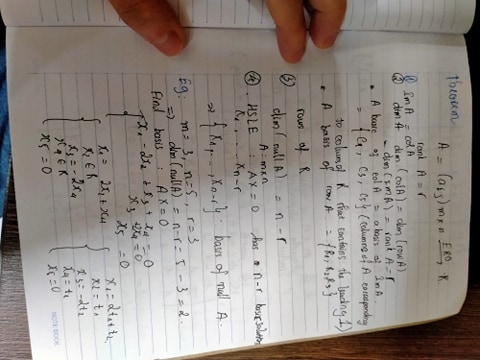 Theorem
A = (aij) m×n ERO → R
rank A = r
① Im A = col A
② dim A dim (col A) = dim (row A)
= dim (Im A) = rank A = r
• A basic of col A = a basis of Im A
= { C1, C3, C5} (columns of A corresponding
to column of R that contains the leading 1)
• A basis of row A = {R1, R2, R3}
rows of R
③
dim (null A) = n - r
A: m×n
④ HSLE : AX = 0 has n-r basic solutions
X1, ..., Xn-r
⇒ {X1, ..., Xn-r} : basis of null A.
Eg: m = 3, n = 5, r = 3
⇒ dim (null A) = n-r = 5 - 3 = 2.
Find basis : AX = 0
x1 - 2x2 + x3 + x4 = 0
x3 + 2x4 = 0
x5 = 0
x1 = 2x2 + x4
x2 ∈ R
x3 = -2x4
x4 ∈ R
x5 = 0
x1 = 2t1 + t2
x2 = t1
x3 = -2t2
x4 = t2
x5 = 0
NOTE BOOK